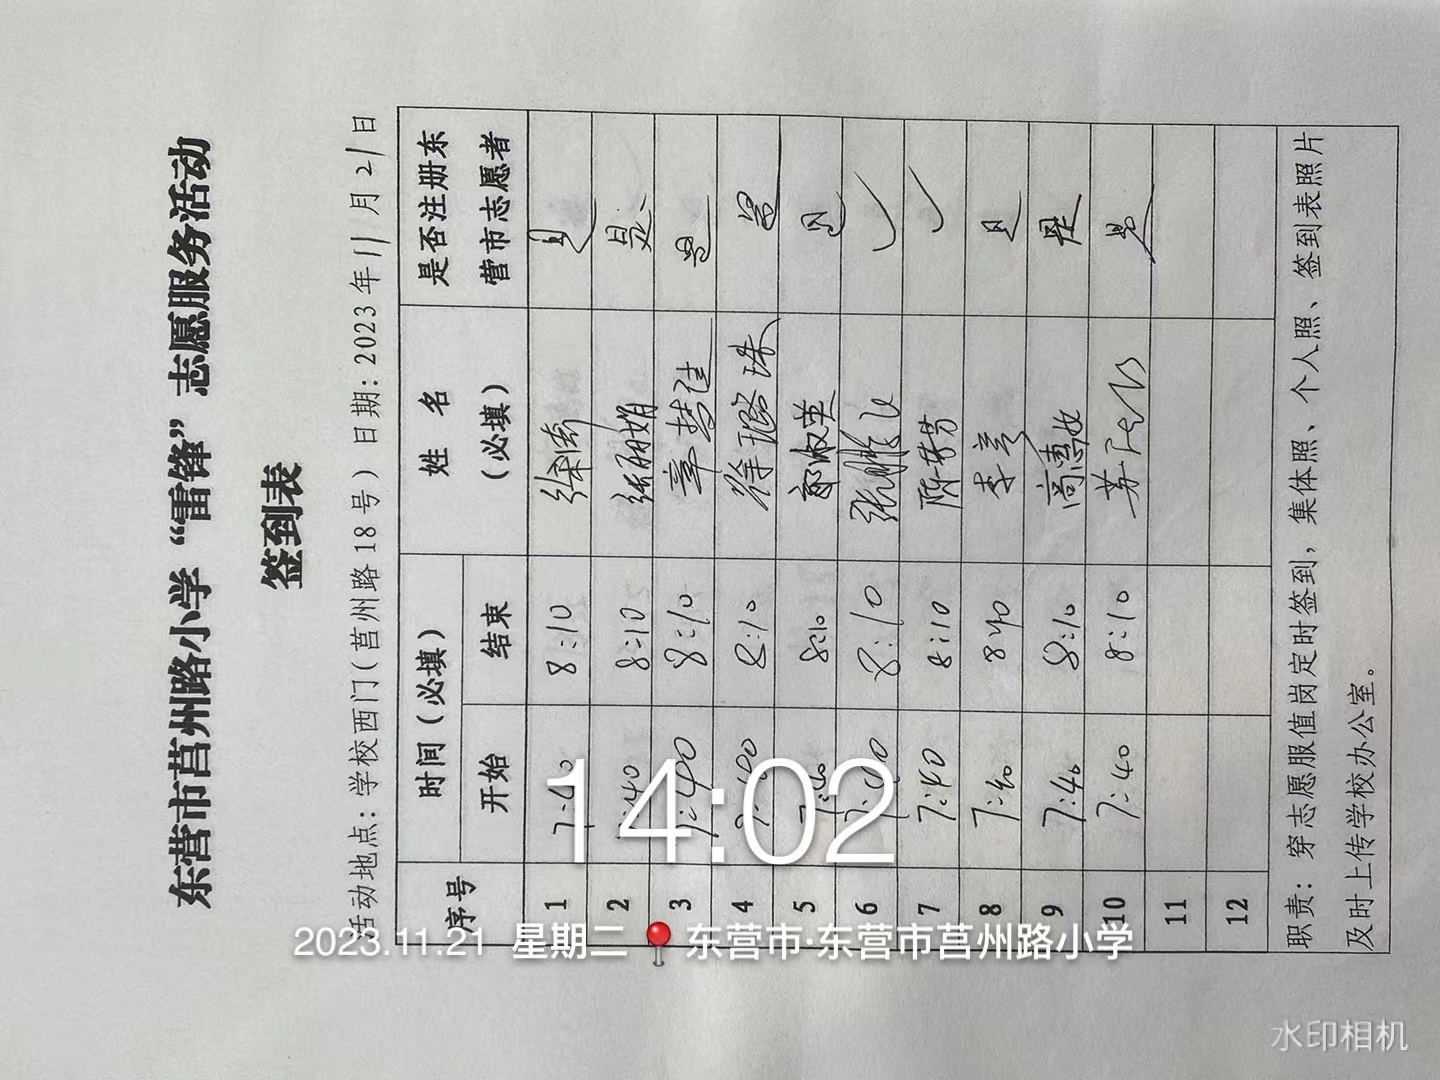 东营市莒州路小学“雷锋”志愿服务活动
签到表
活动地点：学校西门（莒州路18号）日期：2023年11月21日
序号 时间（必填） 姓 名（必填） 是否注册东营市志愿者
开始 结束
1 7:40 8:10 是
2 7:40 8:10 张丽娟 是
3 7:40 8:10 是
4 7:40 8:10 徐璐珠 是
5 7:40 8:10 郭淑英 是
6 7:40 8:10 ✓
7 7:40 8:10 ✓
8 7:40 8:40 李亮 是
9 7:40 8:10 高惠 是
10 7:40 8:10 苏 是
11
12
职责：穿志愿服值岗定时签到，集体照、个人照、签到表照片
及时上传学校办公室。
14:02
2023.11.21 星期二 东营市·东营市莒州路小学
水印相机